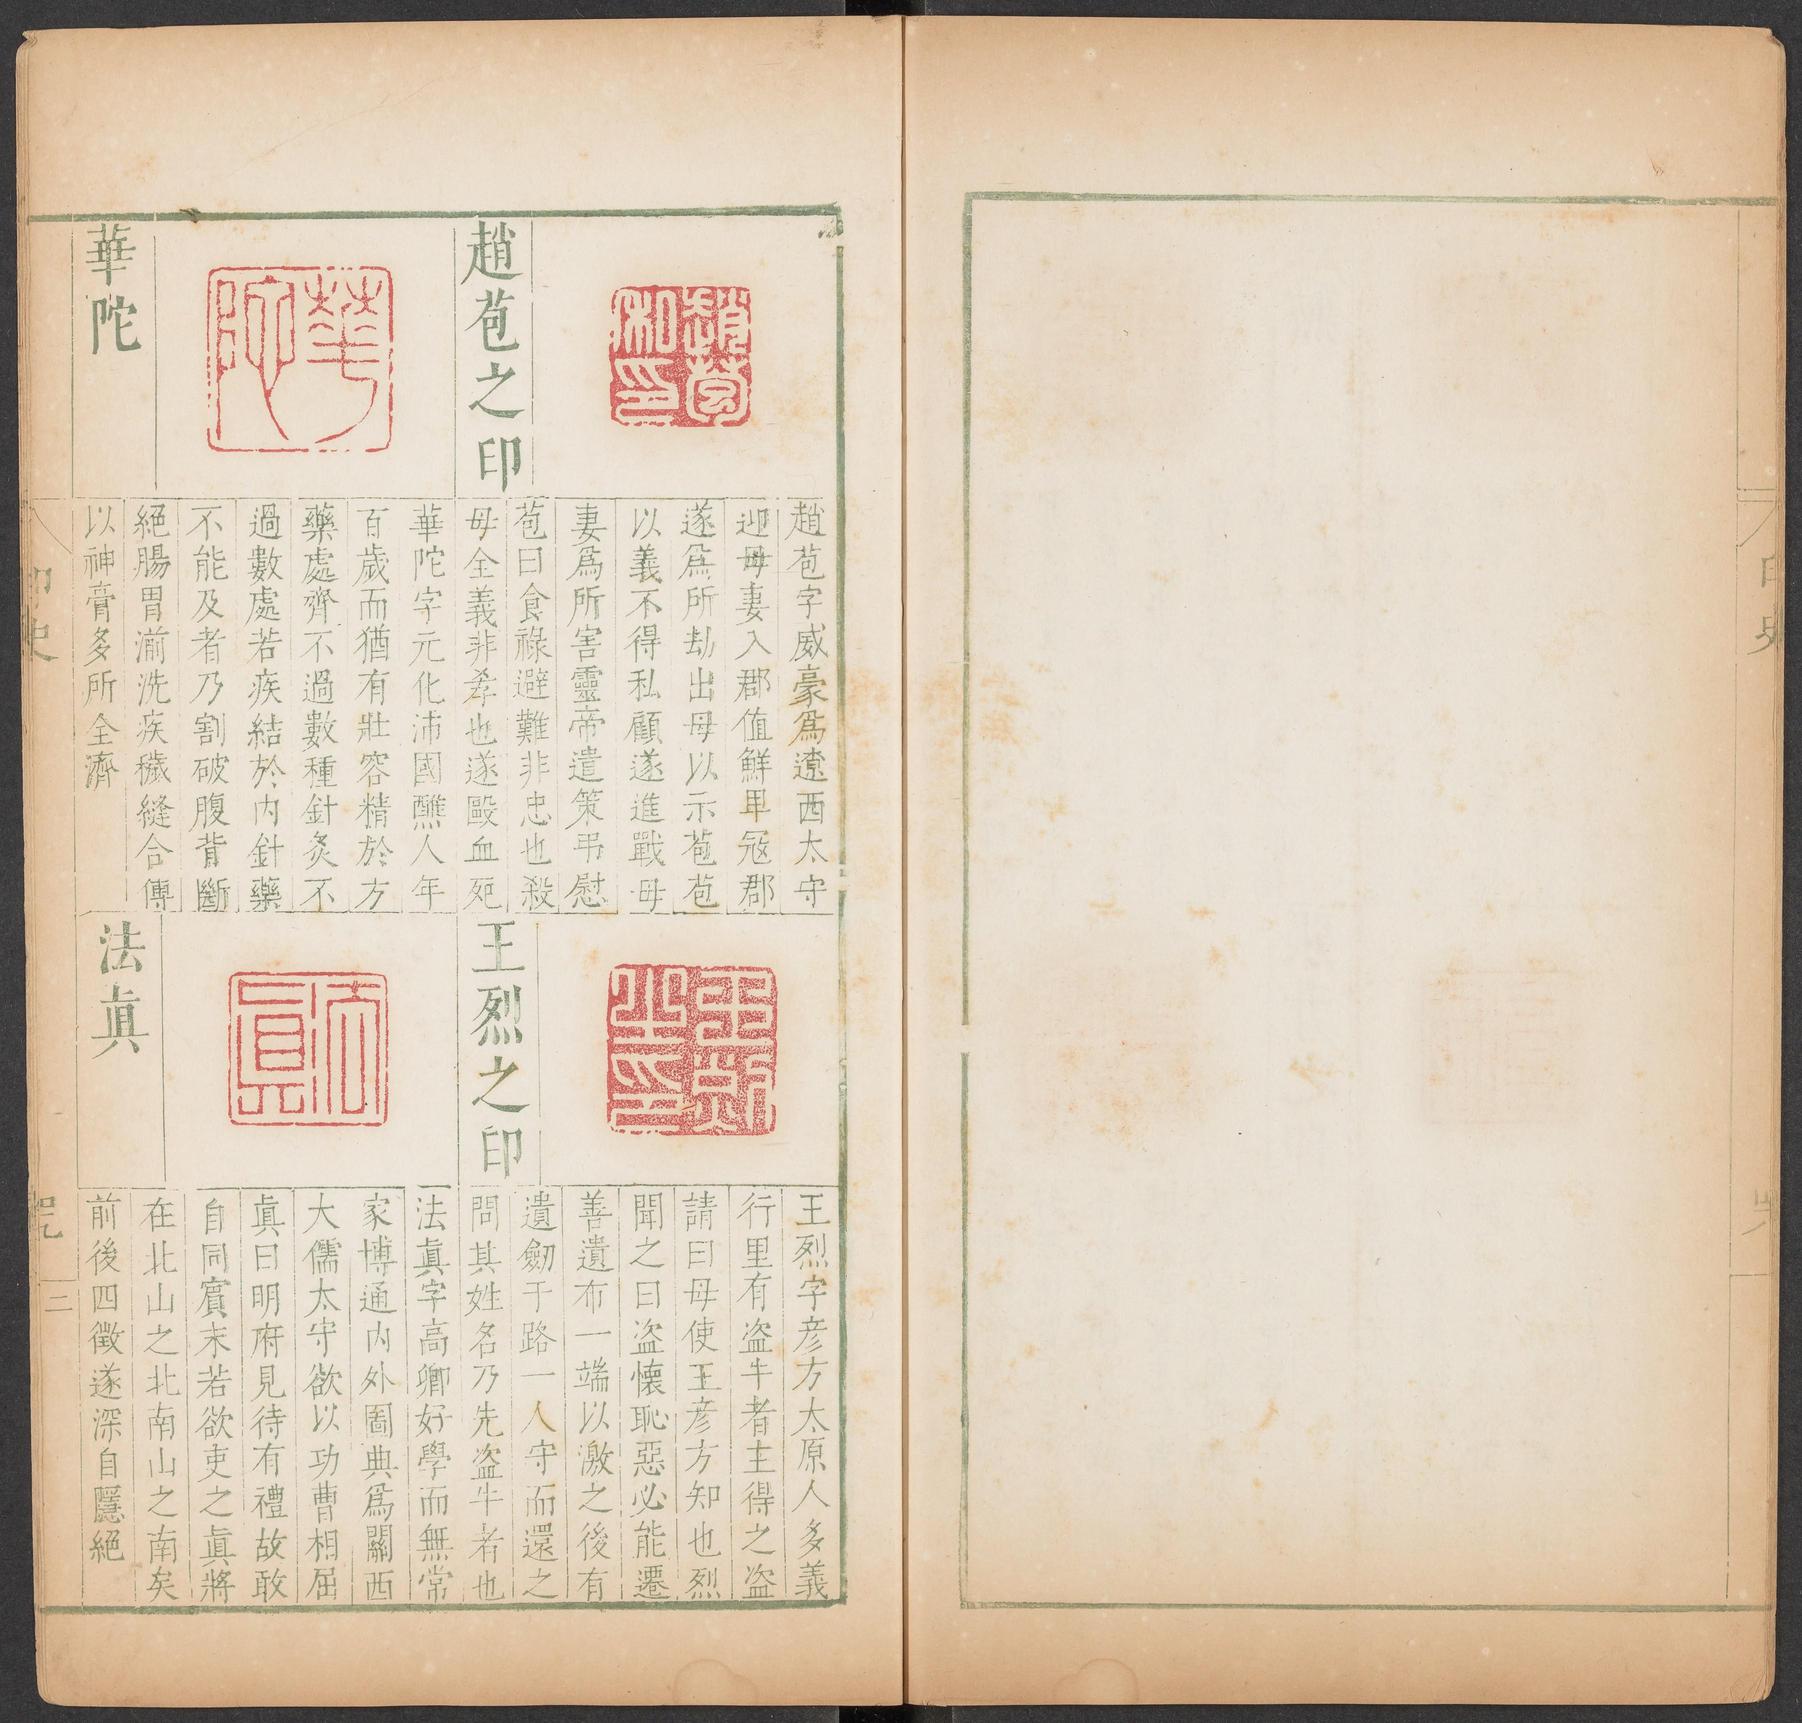 趙苞之印
趙苞字威豪爲遼西太守
迎母妻入郡值鮮卑冦郡
遂爲所劫出母以示苞苞
以義不得私顧遂進戰母
妻爲所害靈帝遣策弔慰
苞曰食祿避難非忠也殺
母全義非孝也遂毆血死
華陀
華陀字元化沛國醮人年
百歲而猶有壯容精於方
藥處齊不過數種針灸不
過數處若疾結於內針藥
不能及者乃割破腹背斷
絕腸胃湔洗疾穢縫合傅
以神膏多所全濟
王烈之印
王烈字彥方太原人多義
行里有盜牛者主得之盜
請曰母使王彥方知也烈
聞之曰盜懷恥惡必能遷
善遺布一端以激之後有
遺劒于路一人守而還之
問其姓名乃先盜牛者也
法眞
法眞字高卿好學而無常
家博通內外圖典爲關西
大儒太守欲以功曹相屈
眞曰明府見待有禮故敢
自同賓末若欲吏之眞將
在北山之北南山之南矣
前後四徵遂深自隱絕
印史
三